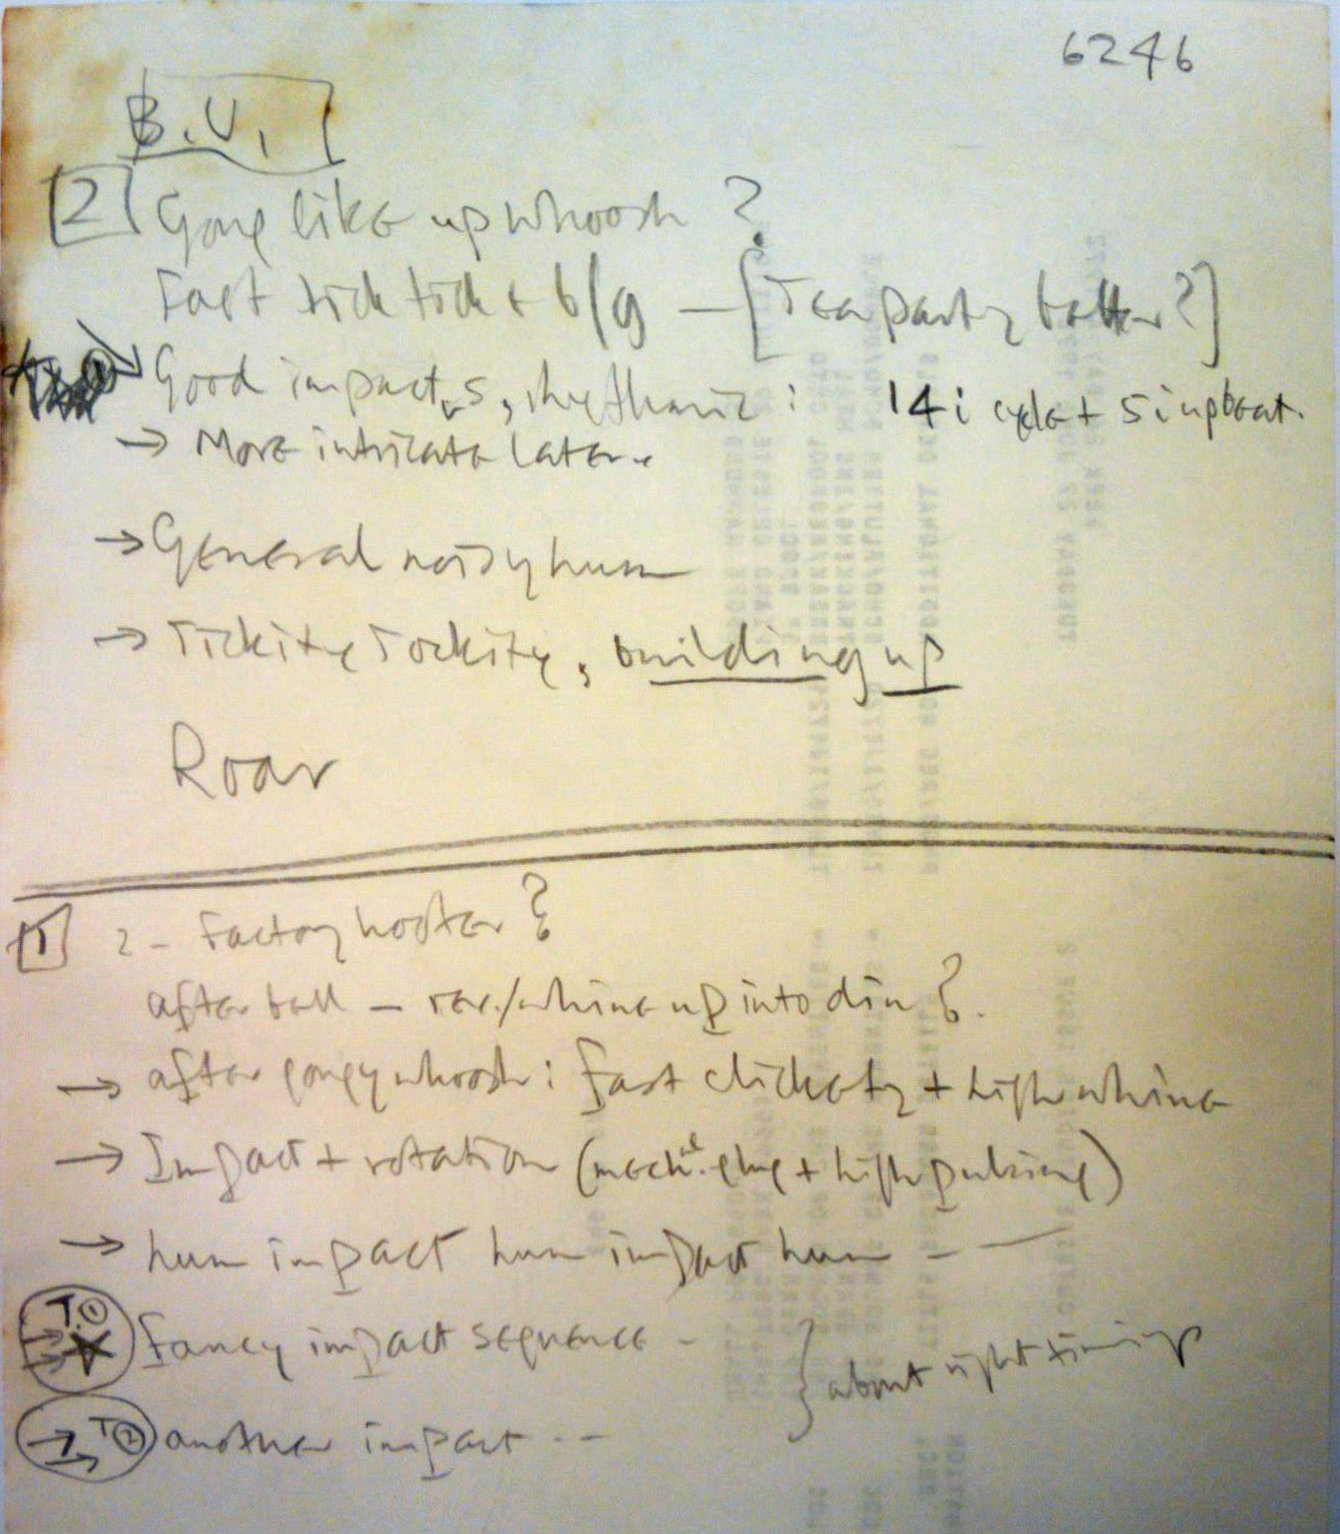 6246
B.U.
2 Gong like up whoosh ?
Fast tick tock + b/g — [Tea party better?]
Good impacts, rhythmic : 14i cycle + 5i upbeat.
→ More intricate later..
→ General noisy hum
→ Tickity Tockity, building up
Roar
1 2 - Factory hooter ?
after bell — rev./whine up into din ?.
→ after gongy whoosh : fast clickety + high whine
→ Impact + rotation (mech. + high pulsing)
→ hum impact hum impact hum - —
T.① fancy impact sequence -
} about right timings
→ T② another impact - -